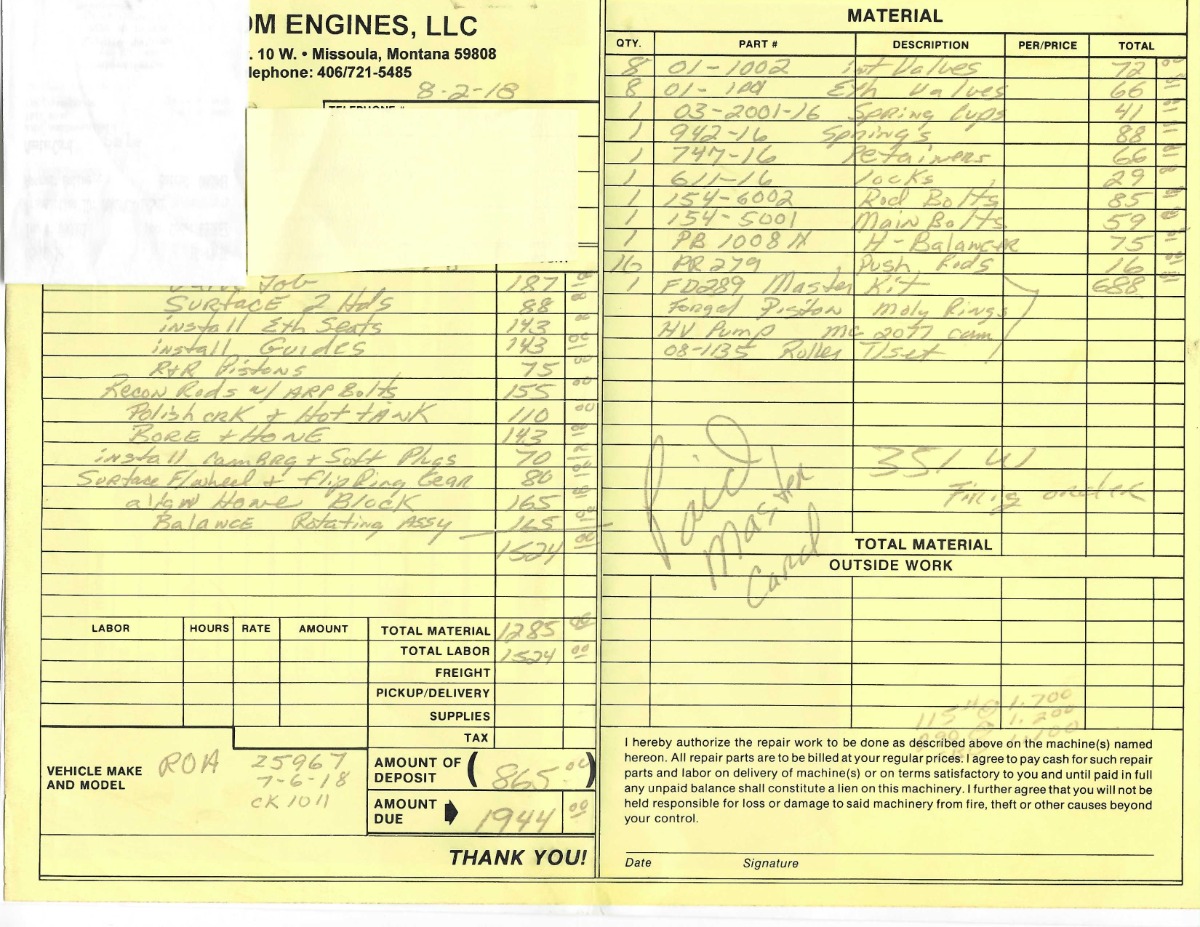 OM ENGINES, LLC
. 10 W. • Missoula, Montana 59808
lephone: 406/721-5485
8-2-18
Job 187
SURFACE 2 Hds 88
install Exh Seats 143
install Guides 143 00
R&R Pistons 75 00
Recon Rods w/ ARP Bolts 155 00
Polish CRK + Hot TANK 110 00
BORE + HONE 143
install Cam BRG + Soft Plugs 70
Surface Flwheel + flip Ring Gear 80
align Hone Block 165
Balance Rotating ASSY 165
1524 00
LABOR HOURS RATE AMOUNT
TOTAL MATERIAL 1285
TOTAL LABOR 1524 00
FREIGHT
PICKUP/DELIVERY
SUPPLIES
TAX
VEHICLE MAKE AND MODEL
ROA 25967
7-6-18
CK 1011
AMOUNT OF DEPOSIT (865.00)
AMOUNT DUE 1944 00
THANK YOU!
MATERIAL
QTY. PART # DESCRIPTION PER/PRICE TOTAL
8 01-1002 int Valves 72 00
8 01- Exh Valves 66
1 03-2001-16 Spring Cups 41
1 942-16 Spring's 88
1 747-16 Retainers 66
1 611-16 locks 29
1 154-6002 Rod Bolts 85
1 154-5001 Main Bolts 59
1 PB 1008 N H-Balancer 75
16 PR 279 Push Rods 16
1 FD289 Master Kit 688
Forged Piston Moly Rings
HV Pump MC 2077 cam
08-1135 Roller T/set
351 W
Firing order
Paid
Master
Card
TOTAL MATERIAL
OUTSIDE WORK
115 @ 1.700
I hereby authorize the repair work to be done as described above on the machine(s) named
hereon. All repair parts are to be billed at your regular prices. I agree to pay cash for such repair
parts and labor on delivery of machine(s) or on terms satisfactory to you and until paid in full
any unpaid balance shall constitute a lien on this machinery. I further agree that you will not be
held responsible for loss or damage to said machinery from fire, theft or other causes beyond
your control.
Date Signature